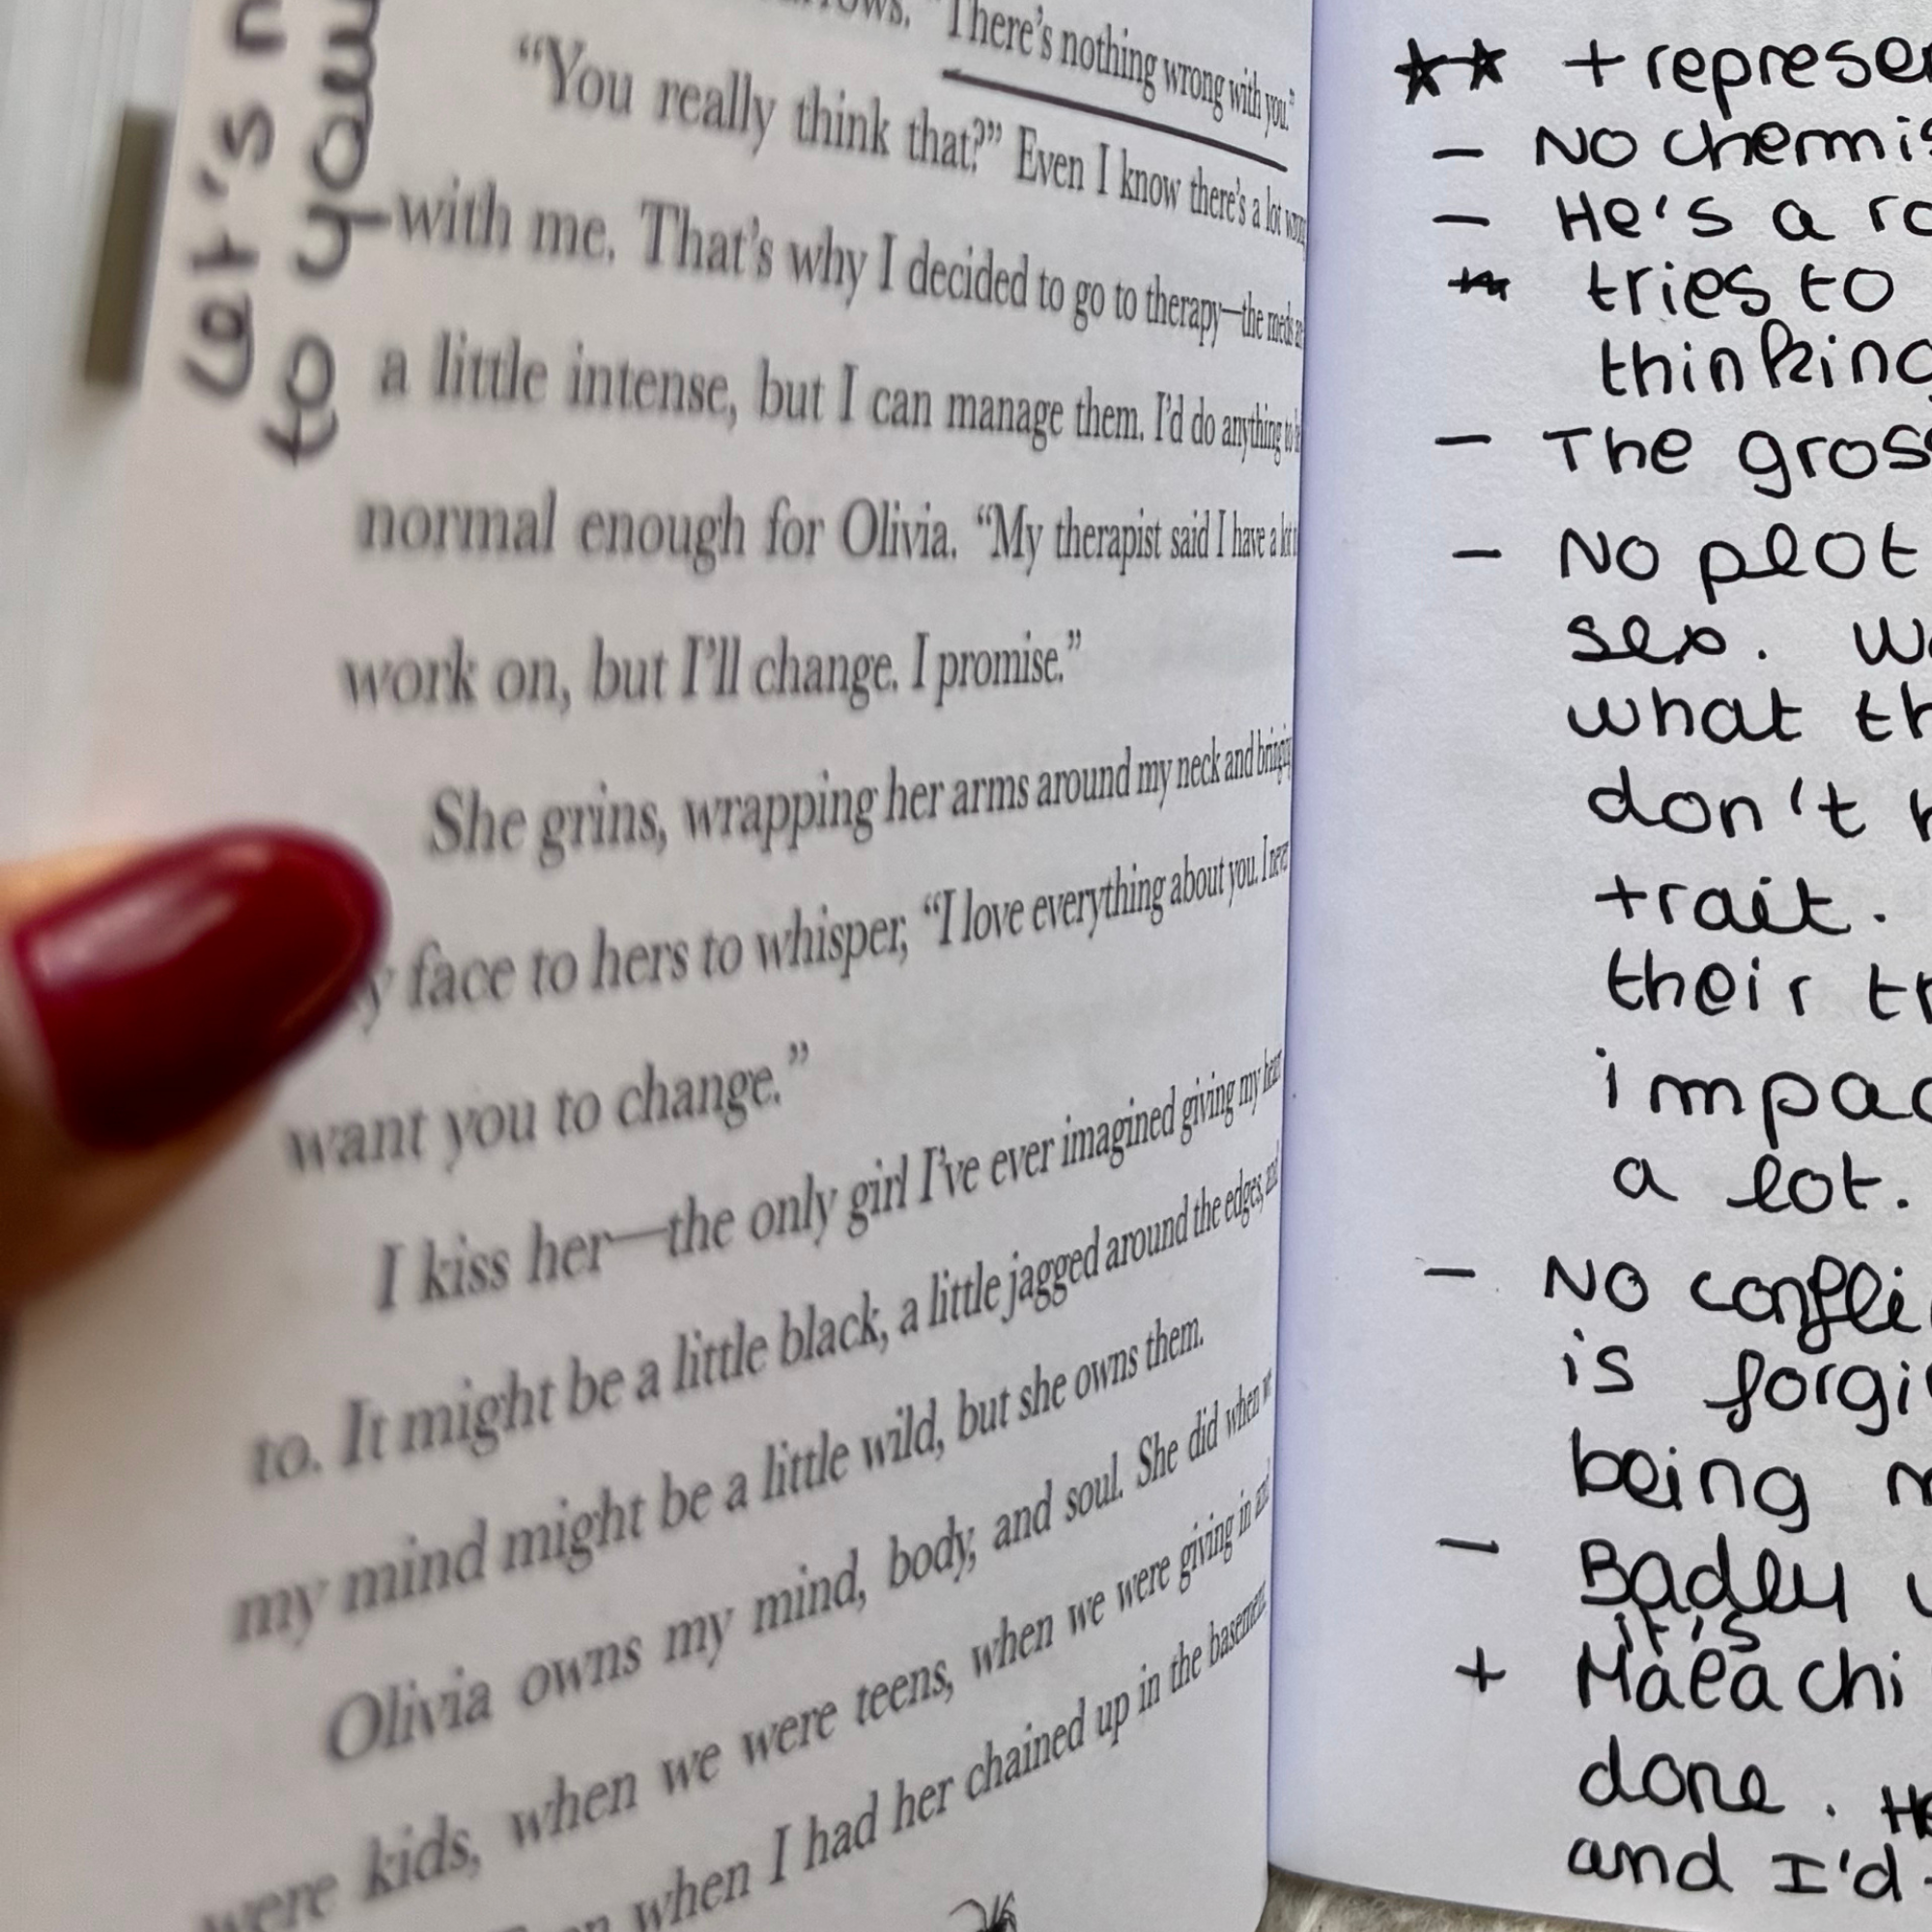 Let's n
to your
"There's nothing wrong with you."
"You really think that?" Even I know there's a lot wrong
with me. That's why I decided to go to therapy—the meds
a little intense, but I can manage them. I'd do anything to
normal enough for Olivia. "My therapist said I have a lot
work on, but I'll change. I promise."
She grins, wrapping her arms around my neck and bringing
face to hers to whisper, "I love everything about you. I never
want you to change."
I kiss her—the only girl I've ever imagined giving my heart
to. It might be a little black, a little jagged around the edges, and
my mind might be a little wild, but she owns them.
Olivia owns my mind, body, and soul. She did when we
were kids, when we were teens, when we were giving in and
when I had her chained up in the basement.
★★ + represe
– NO chemis
– He's a
tries to
thinking
– The gros
– NO plot
sex. W
what th
don't
trait.
their tr
impac
a lot.
– NO confli
is forgi
being m
– Badly
it's
+ Malachi
done. He
and I'd